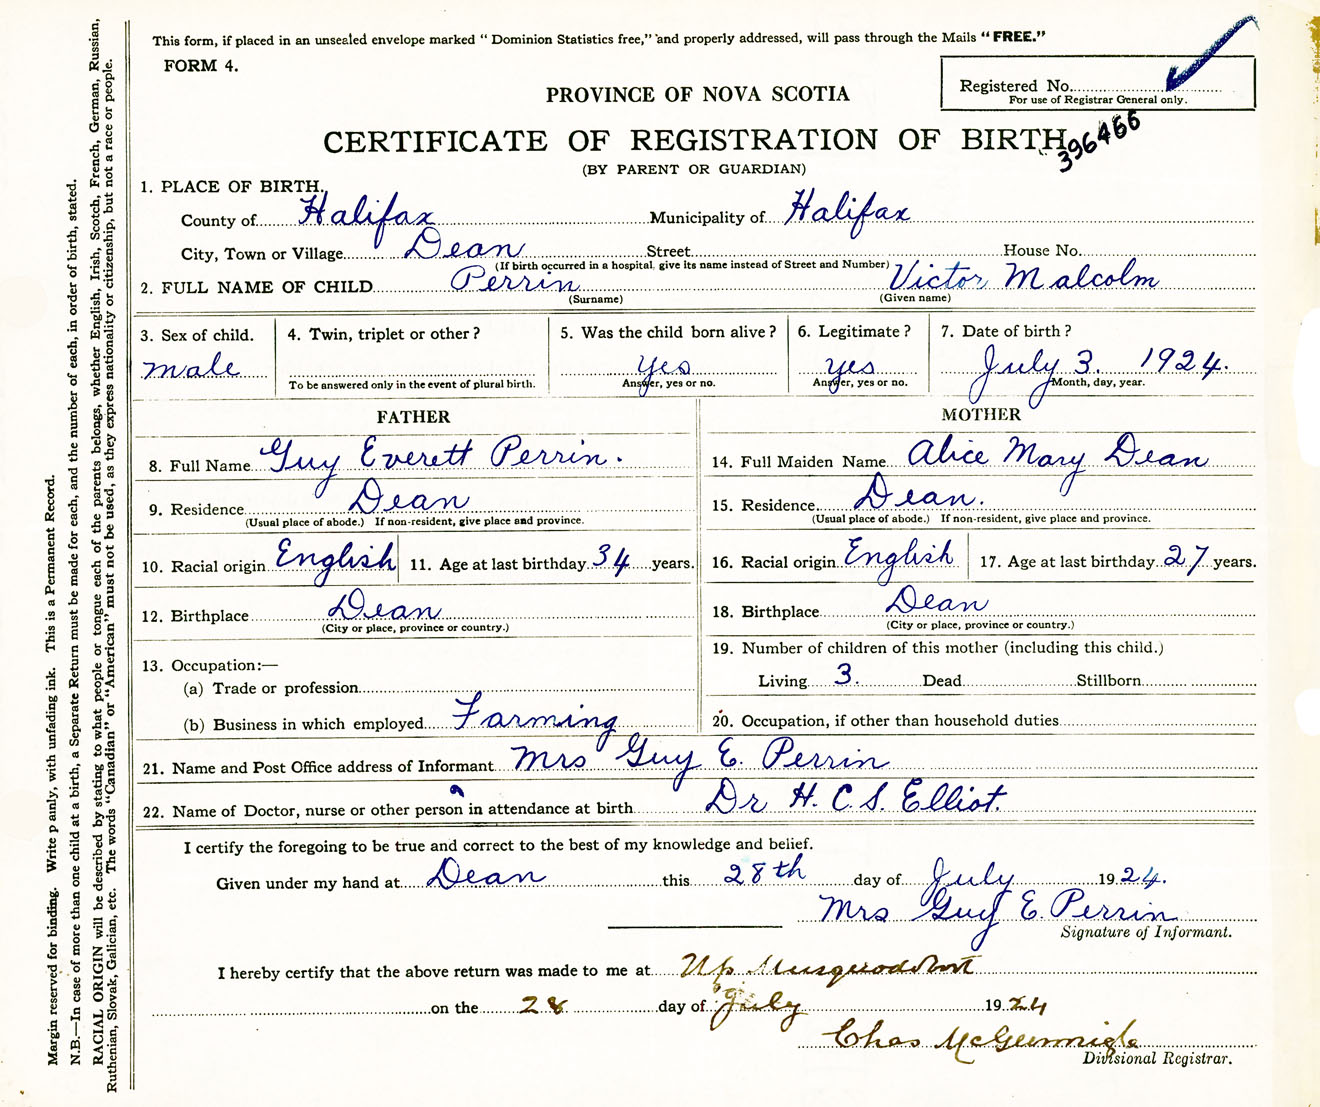 This form, if placed in an unsealed envelope marked “ Dominion Statistics free,” and properly addressed, will pass through the Mails “ FREE.”
FORM 4.
Registered No.
For use of Registrar General only.
PROVINCE OF NOVA SCOTIA
CERTIFICATE OF REGISTRATION OF BIRTH
396466
(BY PARENT OR GUARDIAN)
1. PLACE OF BIRTH.
County of Halifax Municipality of Halifax
City, Town or Village Dean Street House No.
(If birth occurred in a hospital, give its name instead of Street and Number)
2. FULL NAME OF CHILD Perrin Victor Malcolm
(Surname) (Given name)
3. Sex of child. 4. Twin, triplet or other ? 5. Was the child born alive ? 6. Legitimate ? 7. Date of birth ?
male yes yes July 3. 1924.
To be answered only in the event of plural birth. Answer, yes or no. Answer, yes or no. Month, day, year.
FATHER MOTHER
8. Full Name Guy Everett Perrin. 14. Full Maiden Name Alice Mary Dean
9. Residence Dean 15. Residence Dean.
(Usual place of abode.) If non-resident, give place and province. (Usual place of abode.) If non-resident, give place and province.
10. Racial origin English 11. Age at last birthday 34 years. 16. Racial origin English 17. Age at last birthday 27 years.
12. Birthplace Dean 18. Birthplace Dean
(City or place, province or country.) (City or place, province or country.)
13. Occupation:— 19. Number of children of this mother (including this child.)
(a) Trade or profession Living 3. Dead Stillborn
(b) Business in which employed Farming 20. Occupation, if other than household duties
21. Name and Post Office address of Informant Mrs Guy E. Perrin
22. Name of Doctor, nurse or other person in attendance at birth Dr H. C. S. Elliot.
I certify the foregoing to be true and correct to the best of my knowledge and belief.
Given under my hand at Dean this 28th day of July 1924.
Mrs Guy E. Perrin
Signature of Informant.
I hereby certify that the above return was made to me at Up Musquodoboit
on the 28 day of July 1924
Chas McGunnigle
Divisional Registrar.
Margin reserved for binding. Write p anly, with unfading ink. This is a Permanent Record.
N.B.—In case of more than one child at a birth, a Separate Return must be made for each, and the number of each, in order of birth, stated.
RACIAL ORIGIN will be described by stating to what people or tongue each of the parents belongs, whether English, Irish, Scotch, French, German, Russian,
Ruthenian, Slovak, Galician, etc. The words “Canadian” or “American” must not be used, as they express nationality or citizenship, but not a race or people.